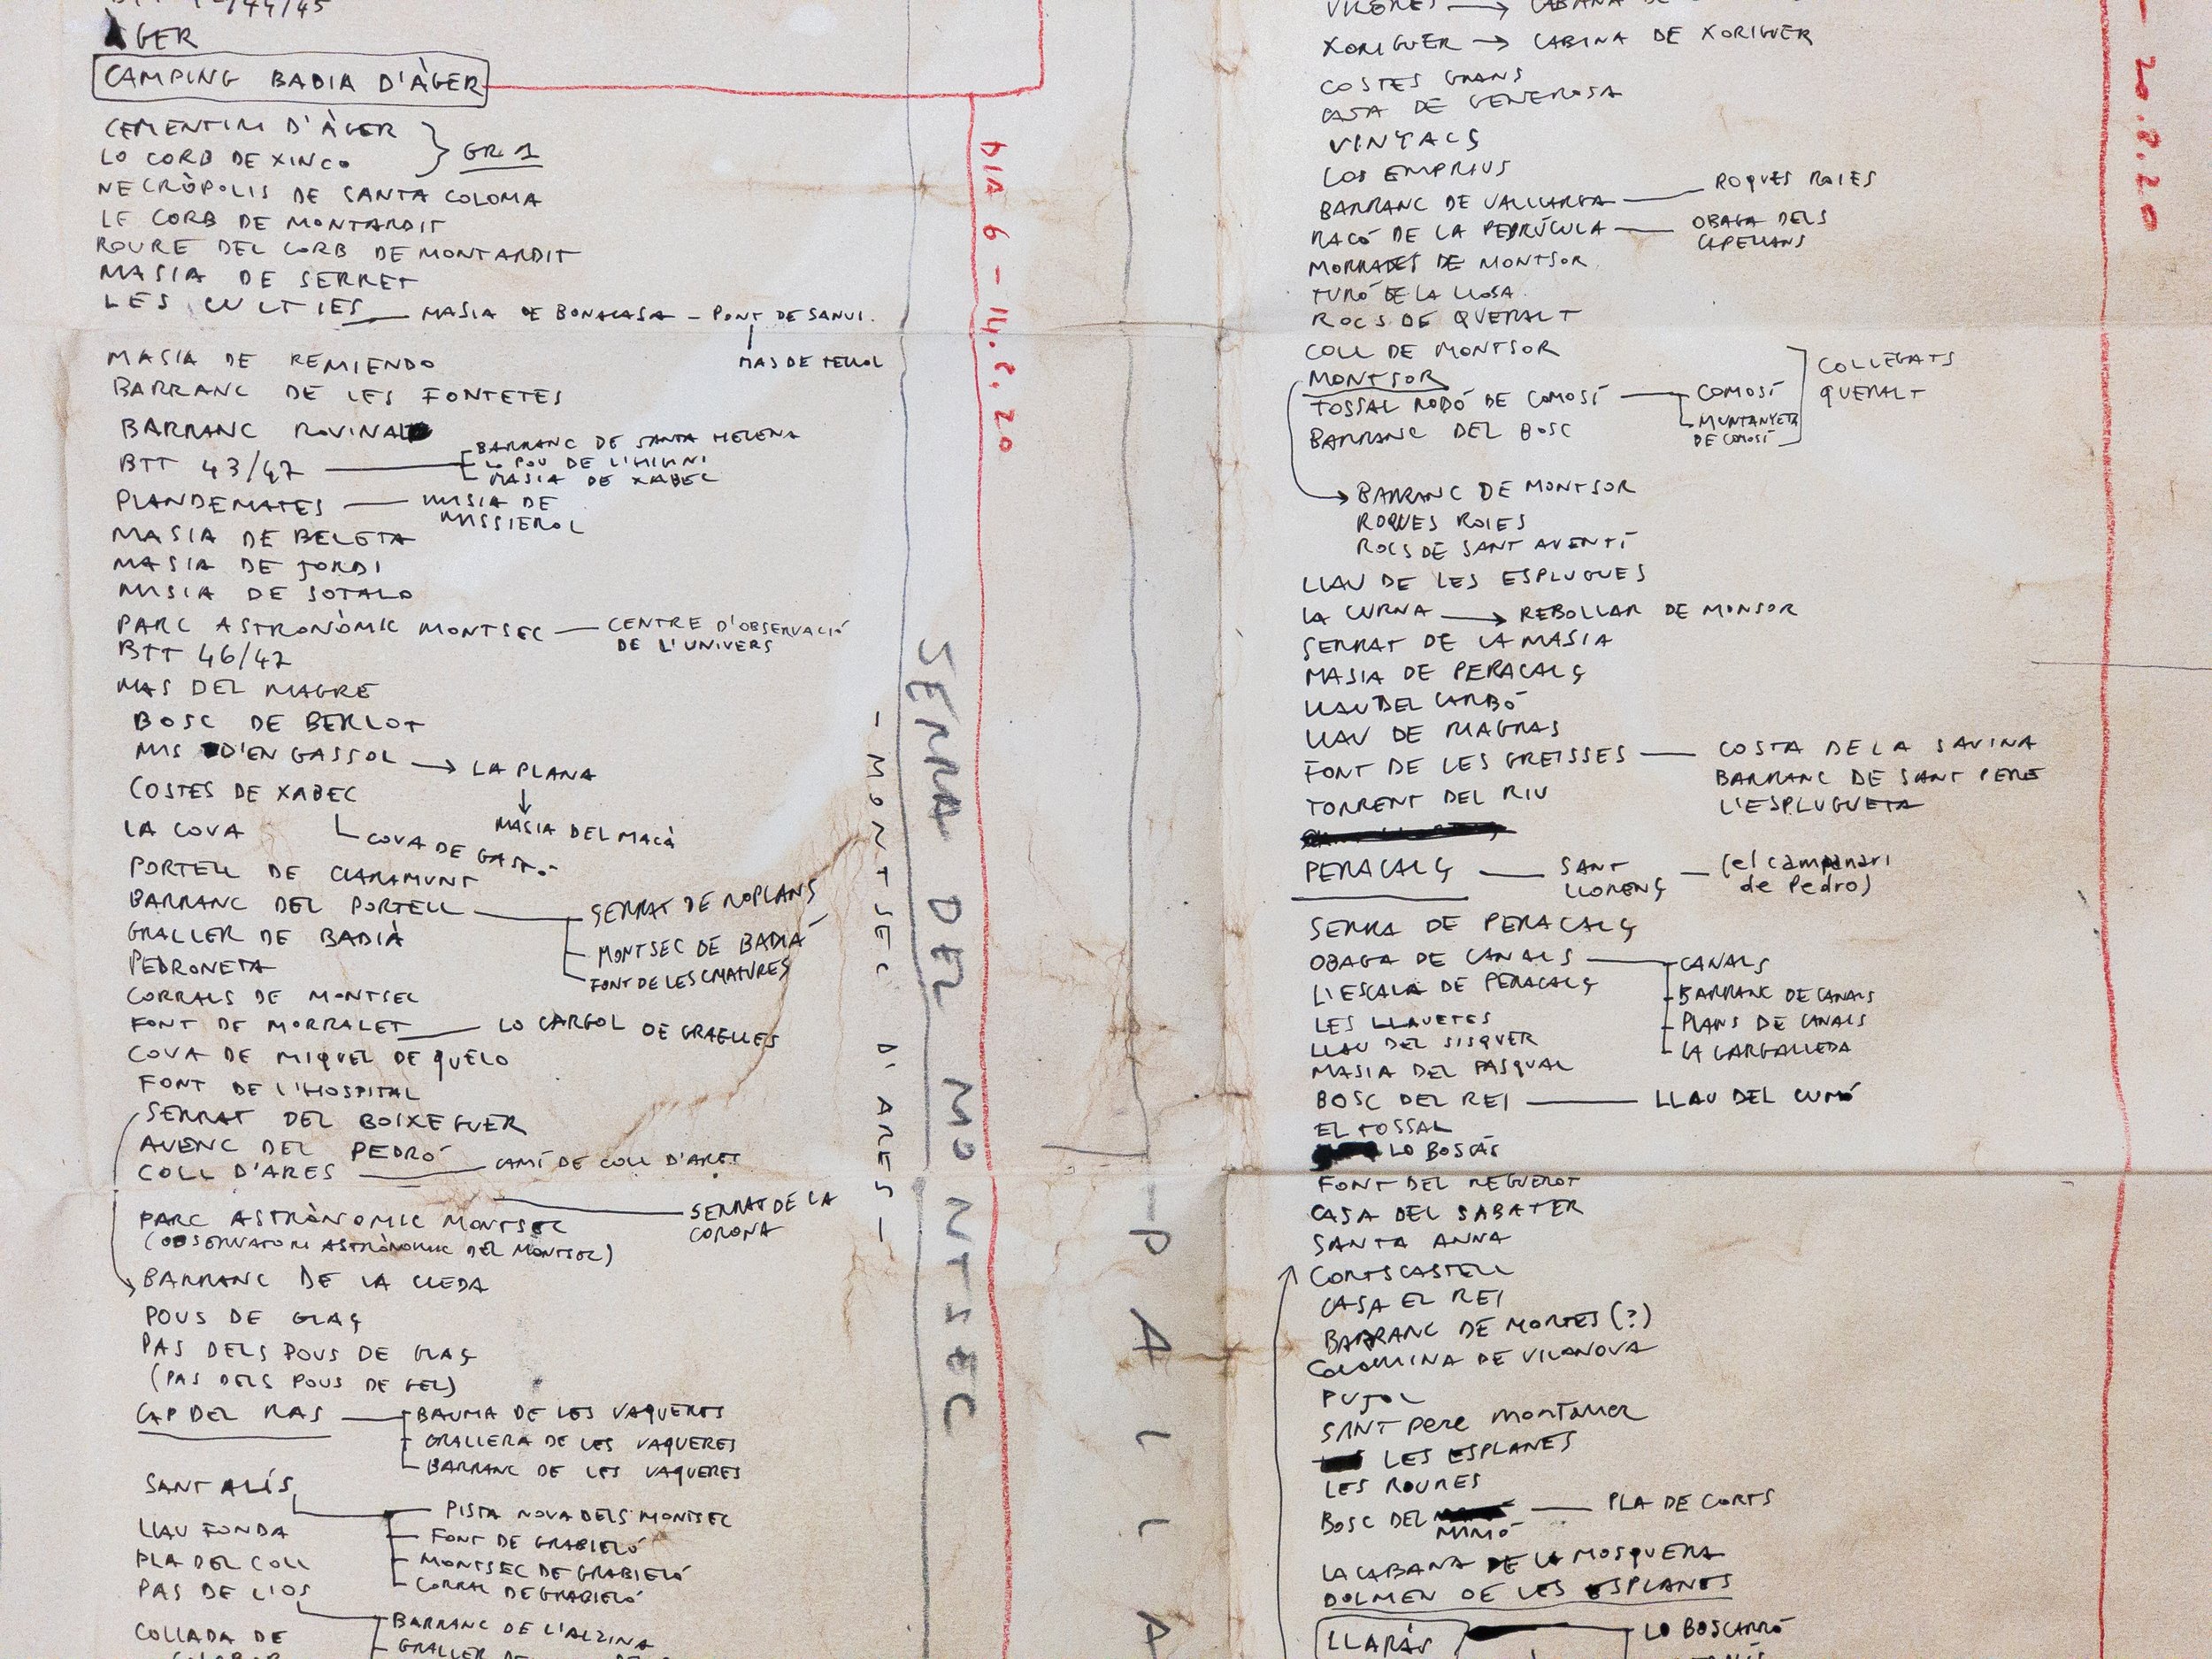 ÀGER
CAMPING BADIA D'ÀGER
CEMENTIRI D'ÀGER
LO CORB DE XINCO
GR 1
NECRÒPOLIS DE SANTA COLOMA
LE CORB DE MONTARDIT
ROURE DEL CORB DE MONTARDIT
MASIA DE SERRET
LES CULTIES — MASIA DE BONACASA — PONT DE SANUI.
MAS DE TELLOL
MASIA DE REMIENDO
BARRANC DE LES FONTETES
BARRANC ROVINAL
BTT 43/47
BARRANC DE SANTA HELENA
LO POU DE L'HIMNI
MASIA DE XABEC
PLANDEMATES — MASIA DE
MISSIEROL
MASIA DE BELETA
MASIA DE JORDI
MASIA DE SOTALO
PARC ASTRONÒMIC MONTSEC — CENTRE D'OBSERVACIÓ
DE L'UNIVERS
BTT 46/47
MAS DEL MAGRE
BOSC DE BERLOT
MAS D'EN GASSOL → LA PLANA
MASIA DEL MACÀ
COSTES DE XABEC
COVA DE
LA COVA
PORTELL DE CLARAMUNT
BARRANC DEL PORTELL
SERRAT DE ROPLANS
MONTSEC DE BADIA
FONT DE LES CMATURES
GRALLER DE BADIÀ
PEDRONETA
CORRALS DE MONTSEC
FONT DE MORRALET — LO CARGOL DE GRAELLES
COVA DE MIQUEL DE QUELO
FONT DE L'HOSPITAL
SERRAT DEL BOIXEGUER
AVENC DEL PEDRÓ
COLL D'ARES — CAMÍ DE COLL D'ARES
SERRAT DE LA
CORONA
PARC ASTRÒNOMIC MONTSEC
(OBSERVATORI ASTRÒNOMIC DEL MONTSEC)
BARRANC DE LA CLEDA
POUS DE GLAÇ
PAS DELS POUS DE GLAÇ
(PAS DELS POUS DE GEL)
CAP DEL RAS
BAUMA DE LES VAQUERES
GRALLERA DE LES VAQUERES
BARRANC DE LES VAQUERES
SANT ALÍS
PISTA NOVA DELS MONTSEC
FONT DE GRABIELÓ
MONTSEC DE GRABIELÓ
CORRAL DE GRABIELÓ
LLAU FONDA
PLA DEL COLL
PAS DE L'OS
BARRANC DE L'ALZINA
GRALLER DE
COLLADA DE
DIA 6 - 14.8.20
SERRA DEL MONTSEC
- MONTSEC D'ARES -
- PALLA
20.8.20
XORIGUER → CABINA DE XORIGUER
COSTES GRANS
CASA DE GENEROSA
VINYALÇ
LOS EMPRIUS
BARRANC DE VALLLARGA — ROQUES ROIES
RACÓ DE LA PEDRÚCULA — OBAGA DELS
CAPELLANS
MORRADES DE MONTSOR
TURÓ DE LA LLOSA
ROCS DE QUERALT
COLL DE MONTSOR
MONTSOR
TOSSAL RODÓ DE COMOSÍ — COMOSÍ
MUNTANYETA
DE COMOSÍ
COLLEGATS
QUERALT
BARRANC DEL BOSC
BARRANC DE MONTSOR
ROQUES ROIES
ROCS DE SANT AVENTÍ
LLAU DE LES ESPLUGUES
LA CURNA → REBOLLAR DE MONSOR
SERRAT DE LA MASIA
MASIA DE PERACALÇ
LLAU DEL CARBÓ
LLAU DE MAGRAS
FONT DE LES GREISSES — COSTA DE LA SAVINA
BARRANC DE SANT PERE
L'ESPLUGUETA
TORRENT DEL RIU
PERACALÇ — SANT
LLORENÇ — (el campanari
de Pedro)
SERRA DE PERACALÇ
OBAGA DE CANALS
CANALS
BARRANC DE CANALS
PLANS DE CANALS
LA GARGALLEDA
L'ESCALA DE PERACALÇ
LES LLAVETES
LLAU DEL SISQUER
MASIA DEL PASQUAL
BOSC DEL REI — LLAU DEL CUMÓ
EL TOSSAL
LO BOSCÀS
FONT DEL REGUEROT
CASA DEL SABATER
SANTA ANNA
CORTSCASTELL
CASA EL REI
BARRANC DE MORTES (?)
COLOMINA DE VILANOVA
PUJOL
SANT PERE MONTANER
LES ESPLANES
LES ROURES
BOSC DEL MIMÓ — PLA DE CORTS
LA CABANA DE LA MOSQUERA
DOLMEN DE LES ESPLANES
LLARÁS
LO BOSCARRÓ